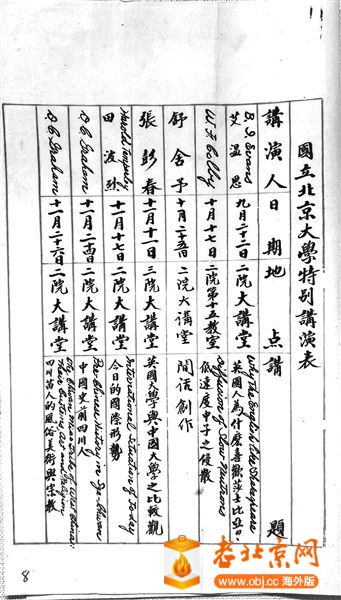 國立北京大學特别講演表
講演人 日期 地点 講題
B. I. Evans 艾温思 九月二十二日 二院大講堂 Why The English like Shakespeare 英國人為什麼喜歡莎士比亞
W. F. Colby 十月十七日 二院第十五教室 Diffusion of Slow Neutrons 低速度中子之侵散
舒舍予 十月二十五日 二院大講堂 閒話創作
張彭春 十一日 三院大講堂 英國大學與中國大學之比較觀
Harold 田波烈 十一月十七日 二院大講堂 International Situation of To-day 今日的國際形勢
D. C. Graham 十一月二十四日 二院大講堂 Pre-Chinese History in Sze-Chwan 中國史前四川人
D. C. Graham 十一月二十六日 二院大講堂 of West China: Their Customs, Art and Religion 四川苗人的風俗美術與宗教
8
老北京网
www.obj.cc 海外版